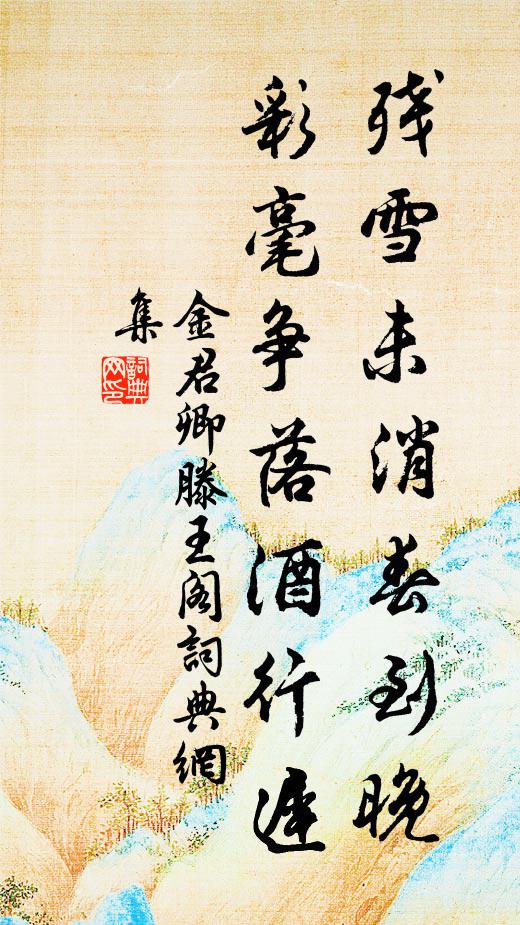 残雪未消春到晚
彩毫争落酒行遲
金君卿滕王阁詞典網
集
詞典网印